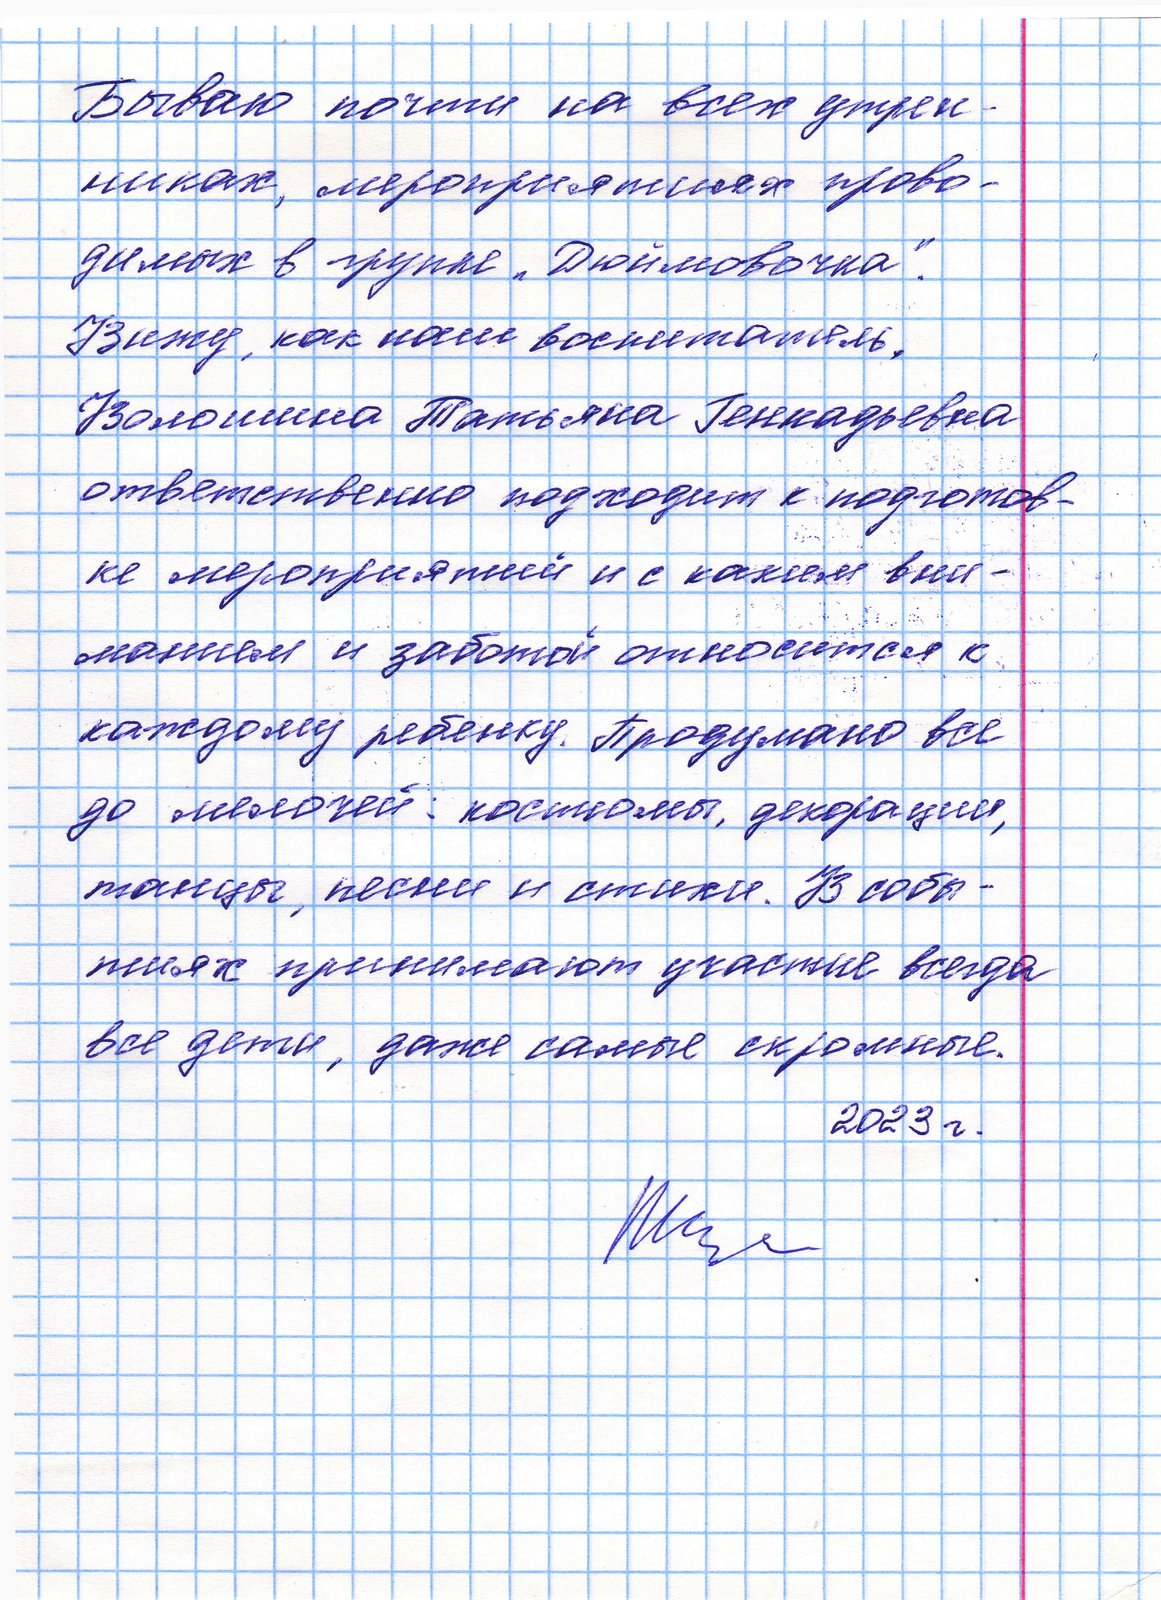 Бываю почти на всех утрен-
никах, мероприятиях прово-
димых в групке „Дюймовочка".
Вижу, как наш воспитатель,
Волошина Татьяна Геннадьевна
ответственно подходит к подготов-
ке мероприятий и с каким вни-
манием и заботой относится к
каждому ребенку. Продумано все
до мелочей: костюмы, декорации,
танцы, песни и стихи. В собы-
тиях принимают участие всегда
все дети, даже самые скромные.
2023 г.